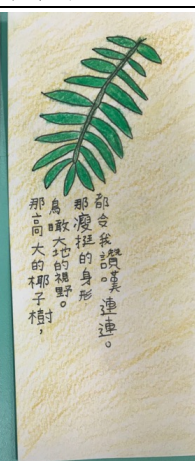 那高大的椰子樹，
鳥瞰大地的視野。
那瘦挺的身形
都令我讚嘆連連。